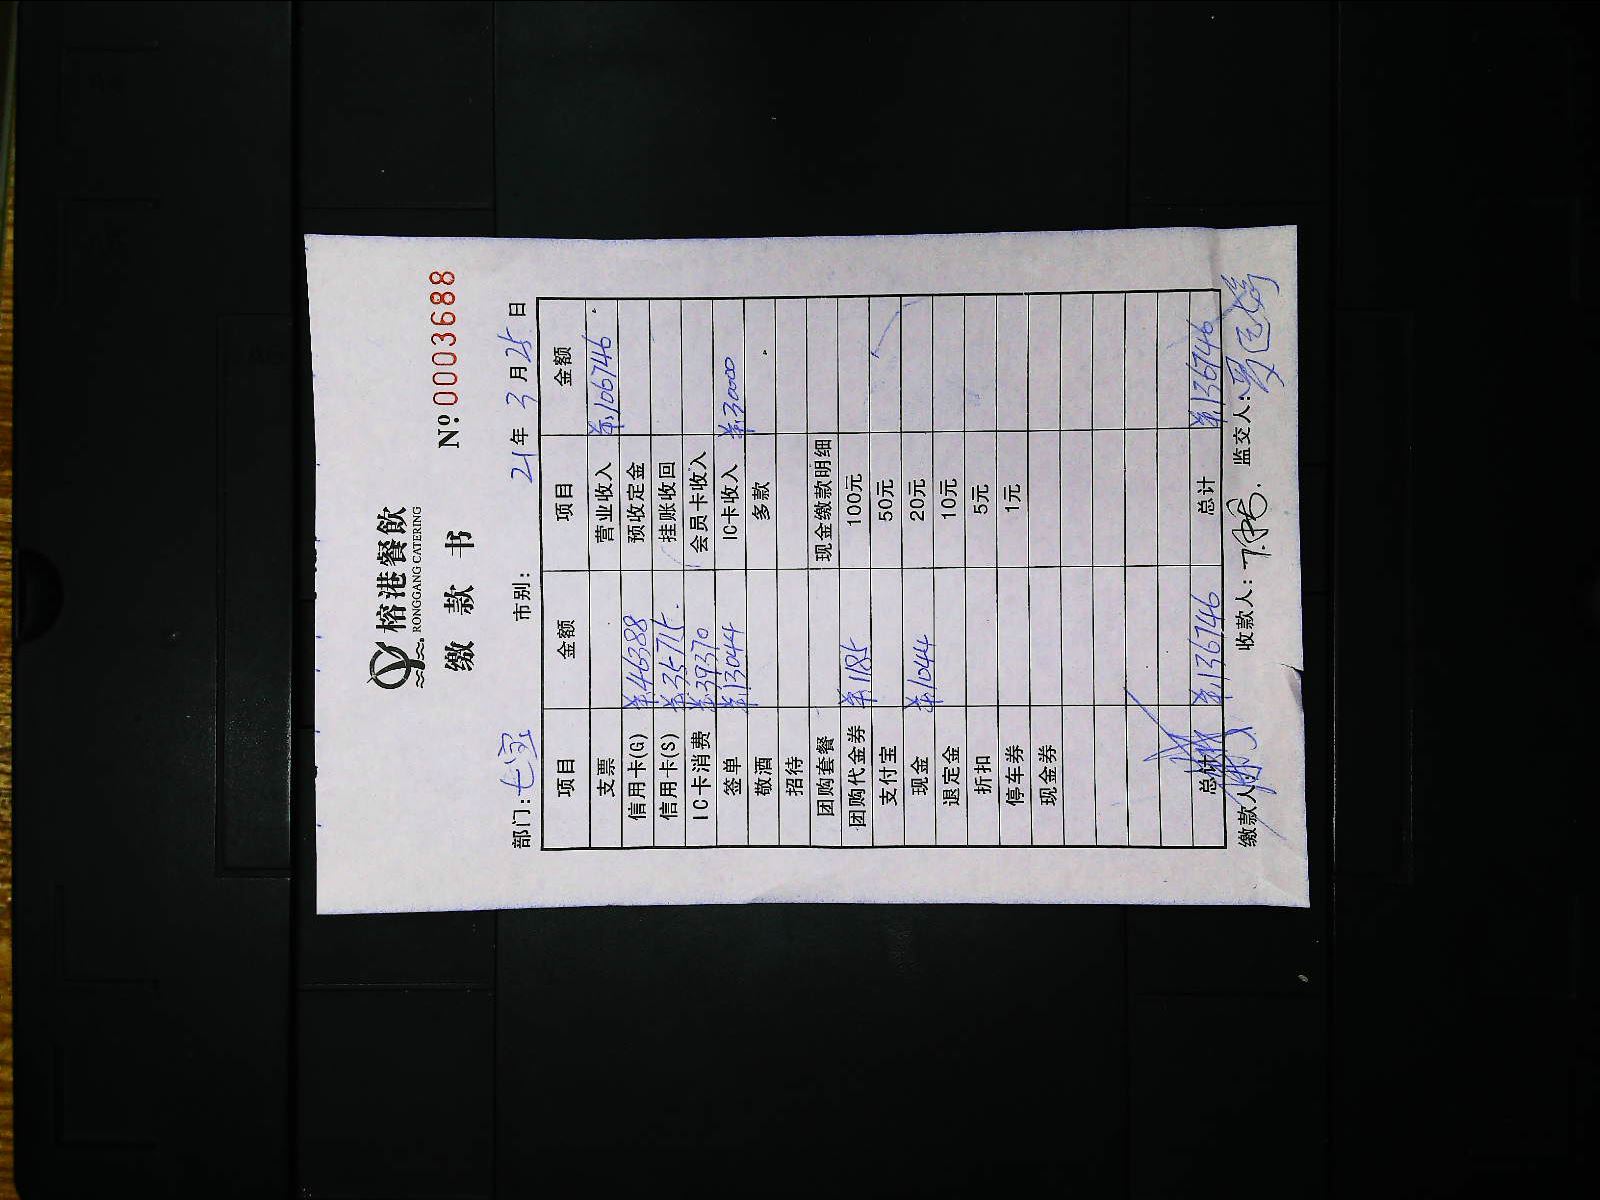 榕港餐飲
RONGGANG CATERING
缴 款 书 Nº 0003688
部门：七宝 市别： 21年 3月25日
项目 金额 项目 金额
支票 营业收入 ¥106746
信用卡(G) ¥46388 预收定金
信用卡(S) ¥35715 挂账收回
IC卡消费 ¥39370 会员卡收入
签单 ¥13044 IC卡收入 ¥30000
敬酒 多款
招待
团购套餐 现金缴款明细
团购代金券 ¥1185 100元
支付宝 50元
现金 ¥1044 20元
退定金 10元
折扣 5元
停车券 1元
现金券
总计 ¥136746 总计 ¥136746
缴款人： 收款人： 监交人：